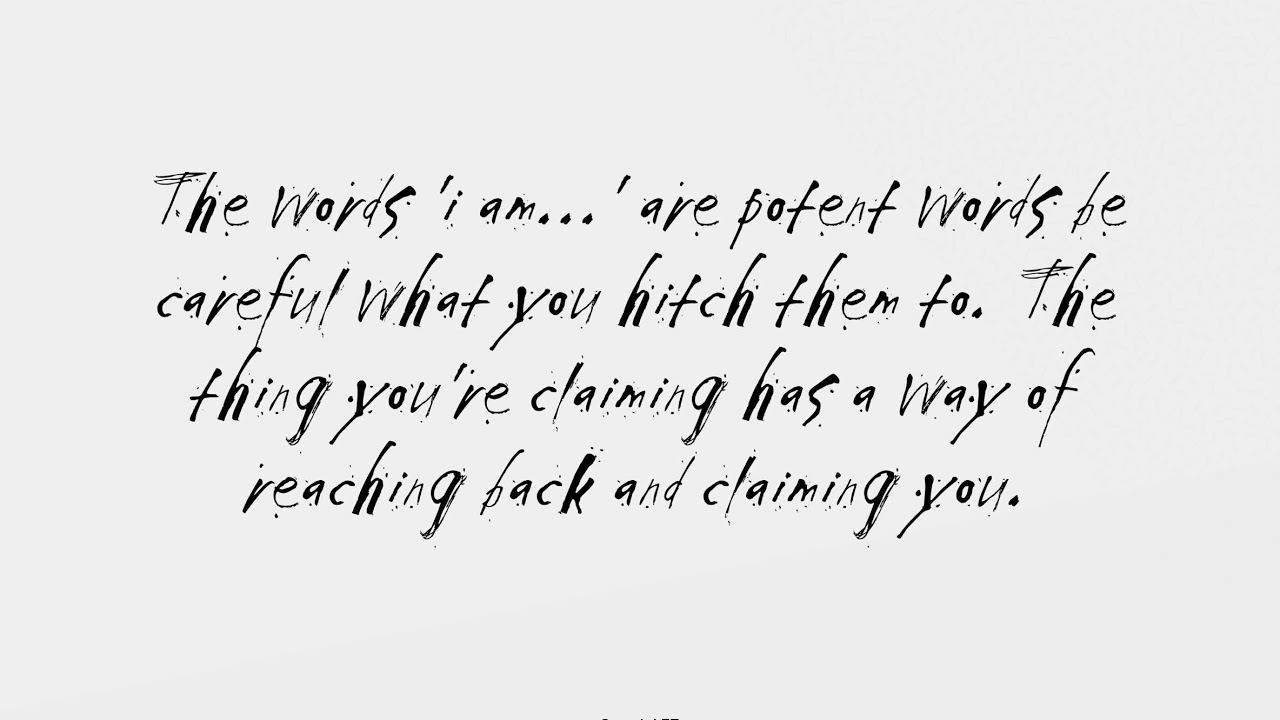 The words 'i am...' are potent words be
careful what you hitch them to. The
thing you're claiming has a way of
reaching back and claiming you.